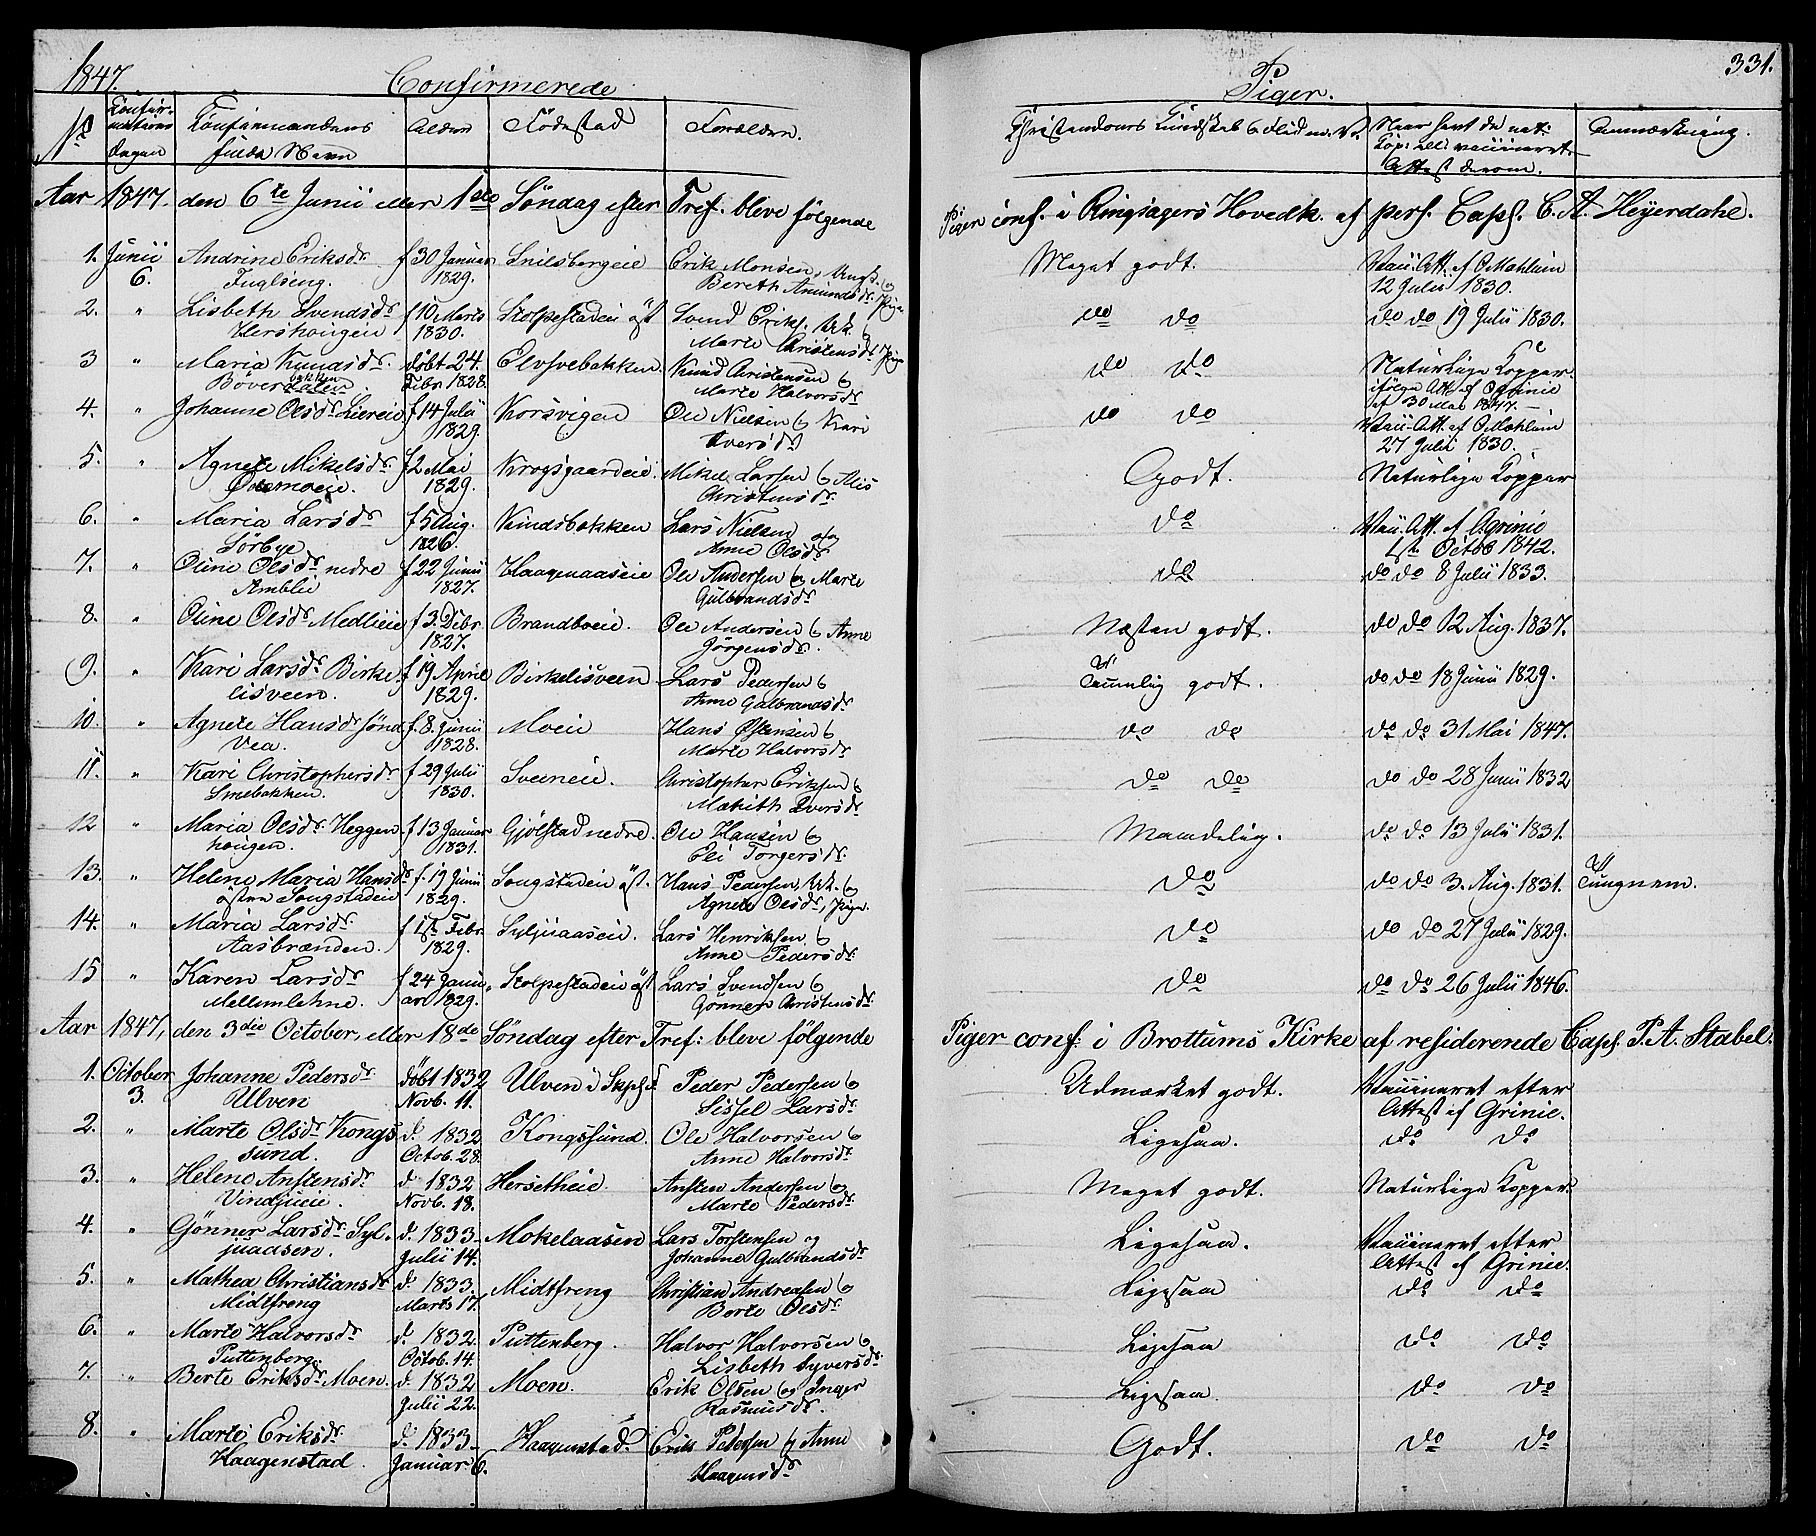 1847. Confirmerede Piger. 331.
No Confirmations dagen Confirmandens fulde Navn Alder Födestad Forældre. Christendoms Kundskab & Flid m. V. Naar havt de nat: Kop: ell: vaccineret Attest derom. Anmærkning.
Aar 1847. den 6te Junii eller 1ste Söndag efter Tref. bleve fölgende Piger conf. i Ringsagers Hovedk. af pers. Capl. C. A. Heyerdahl.
1. Junii 6. Andrine Eriksdr f 30 Januar 1829. Snilsbergeie Erik Monsen, Ungk. & Bereth Amundsdr, Pige Meget godt. Vacc. Att. af O Mæhlum 12 Julii 1830.
Fuglseng.
2. " Lisbeth Svendsdr f 10 Marts 1830. Stolpestadeie öst Svend Eriks. Urk. & Marte Christensdr, Pige do do do do 19 Julii 1830.
Hershougen
3 " Maria Knudsdr. döbt 24. Febr 1828. Elvsvebakken. Knud Christensen & Marte Halvorsdr do do Naturlige Kopper. ifölge Att. af Grinie af 30 Mai 1847.
Böverdalen bakken
4. " Johanne Olsdr Liereie f 14 Julii 1829. Korsvigen Ole Nielsen & Kari Iversdr do do Vacc. Att. af O Mæhlum 27 Julii 1830.
5. " Agnete Mikelsdr f 2 Mai 1829. Krogsgaardeie Mikel Larsen & Christensdr. Godt. Naturlige Kopper
6. " Maria Larsdr f 5 Aug. 1826. Kindsbakken Lars Nielsen og Anne Olsdr do Vacc. Att. af Grinie 1st Octob 1842.
Sörbye
7. " Oline Olsdr nedre f 22 Junii 1827. Haagenaaseie Ole Andersen & Marte Gulbrandsdr do do do 8 Julii 1833.
Amblie
8. " Oline Olsdr Medlieie f 3 Dcbr 1827. Brandboeie. Ole Andersen & Anne Jörgensdr. Næsten godt. do do 12 Aug. 1837.
9. " Kari Larsdr Birke- f 19 April 1829. Birkelisveen Lars Pedersen & Anne Gulbrandsdr Temmelig godt. do do 18 Junii 1829.
lisveen.
10. " Agnete Hansdr sönd f. 8. Junii 1828. Moeie Hans Östensen & Marte Halvorsdr do do do do 31 Mai 1847.
Vea.
11. " Kari Christophersdr f 29 Julii 1830. Sveeneie. Christopher Eriksen & Mækith Iversdr do do do do 28 Junii 1832
Smebakken.
12 " Maria Olsdr. Heggen- f 13 Januar 1831. Gjölstad nedre. Ole Hansen & Eli Torgersdr. Maadelig. do do 13 Julii 1831.
hougen.
13. " Helene Maria Hansdr f. 19 Junii 1829. Songstadeie öst. Hans Pedersen, Urk. & Agnete Olsdr, Pige. do do do 3. Aug. 1831. Tungnem.
östen Songstadeie
14. " Maria Larsdr. f 1st Febr 1829. Syljuaaseie. Lars Henriksen & Anne Pedersdr. do do do 27 Julii 1829.
Aasbrænden.
15 " Karen Larsdr f 24 Januar 1829. Stolpestadeie öst Lars Svendsen & Gönner Christensdr. do do do 26 Julii 1846.
Mellemlehne.
Aar 1847, den 3die October, eller 18de Söndag efter Tref: bleve fölgende Piger conf: i Brottums Kirke af residerende Capl. P. A. Stabel.
1. October 3. Johanne Pedersdr döbt 1832 Novb. 11. Ulven i Peder Pedersen & Sissel Larsdr. Udmærket godt. Vaccineret efter Attest af Grinie.
Ulven
2. " Marte Olsdr Kongs- d. 1832 Octob. 28. Kongssund. Ole Halvorsen & Anne Halvorsdr. Ligesaa. do do
sund.
3. " Helene Anstensdr. d. 1832 Novb. 18. Hersetheie. Ansten Andersen & Marte Pedersdr. Meget godt. Naturlige Kopper.
Vindjueie.
4. " Gönner Larsdr. Syl- d. 1833 Julii 14. Mokelaasen Lars Torstensen og Johanne Gulbrandsdr Ligesaa. Vaccineret efter Attest af Grinie.
juaasen.
5. " Mathea Christiansdr d. 1833. Marts 17. Midtfreng Christian Andreasen & Berte Olsdr. Ligesaa do do
Midtfreng
6. " Marte Halvorsdr d. 1832. Octob. 14. Puttenberg. Halvor Halvorsen & Lisbeth Syversdr. Ligesaa do do
Puttenberg.
7. " Berte Eriksdr. Moen. d. 1832 Julii 22. Moen. Erik Olsen og Inger Rasmusdr. Ligesaa. do do
8. " Marte Eriksdr. d. 1833 Januar 6. Haagenstad. Erik Pedersen & Anne Haagensdr Godt. do do
Haagenstad.